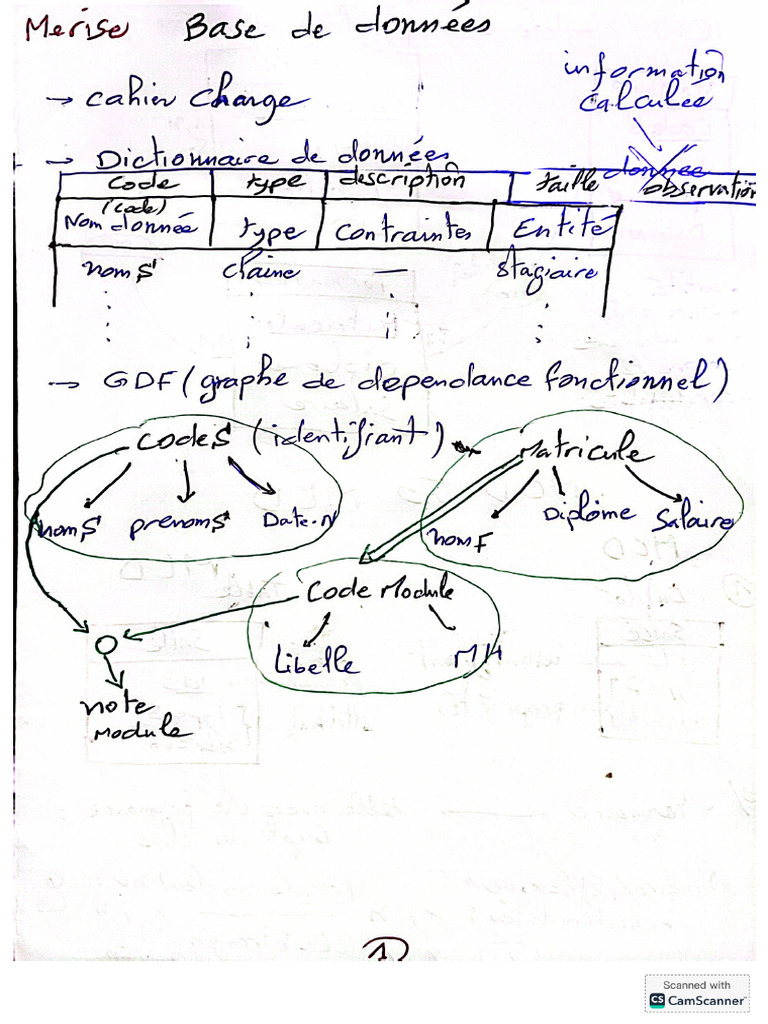 Merise Base de données
information
calculée
→ cahier charge
→ Dictionnaire de données
donnee
code type description taille observation
(code)
Nom donnée type contraintes Entité
nomS chaine — stagiaire
→ GDF (graphe de dependance fonctionnel)
codeS (identifiant) Matricule
nomS prenomS Date.N
nomF Diplôme Salaire
Code Module
Libelle MH
note
Module
1
Scanned with
CS CamScanner